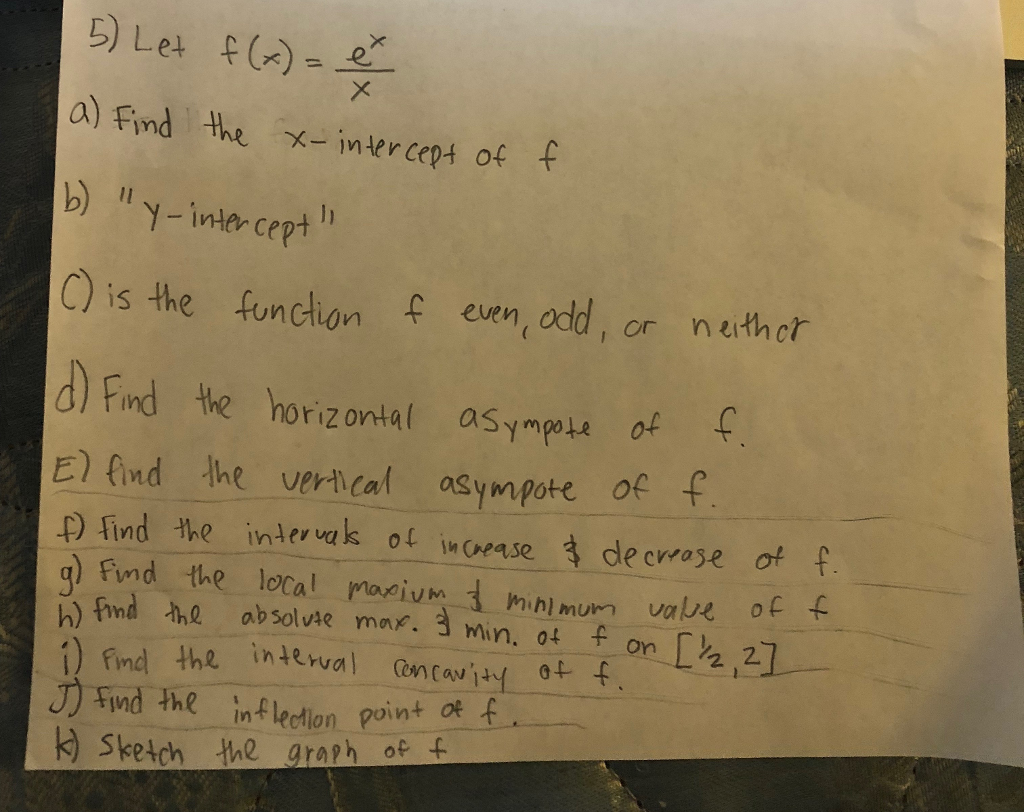 5) Let f(x) = e^x / x
a) Find the x-intercept of f
b) "y-intercept"
C) is the function f even, odd, or neither
d) Find the horizontal asympote of f.
E) find the vertical asympote of f.
f) find the intervals of increase & decrease of f.
g) Find the local maxium & minimum value of f
h) find the absolute max. & min. of f on [1/2, 2]
i) Find the interval concavity of f.
J) find the inflection point of f.
k) Sketch the graph of f